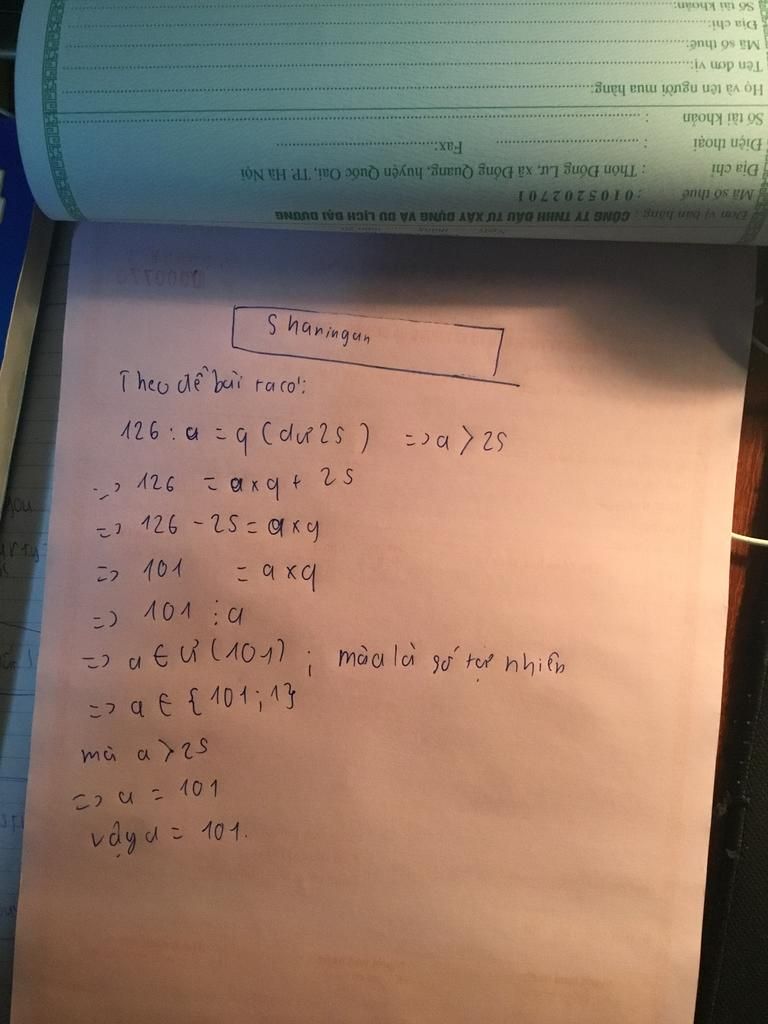 Số tài khoản:
Địa chỉ:
Mã số thuế:
Tên đơn vị:
Họ và tên người mua hàng:
Số tài khoản :
Điện thoại : Fax:
Địa chỉ : Thôn Đồng Lư, xã Đồng Quang, huyện Quốc Oai, TP. Hà Nội
Mã số thuế : 0105202701
Đơn vị bán hàng : CÔNG TY TNHH ĐẦU TƯ XÂY DỰNG VÀ DU LỊCH ĐẠI DƯƠNG
Shaningan
Theo đề bài ra có:
126 : a = q (dư 25) => a > 25
=> 126 = a x q + 25
=> 126 - 25 = a x q
=> 101 = a x q
=> 101 ⋮ a
=> a ∈ Ư (101) ; mà a là số tự nhiên
=> a ∈ { 101 ; 1}
mà a > 25
=> a = 101
vậy a = 101.